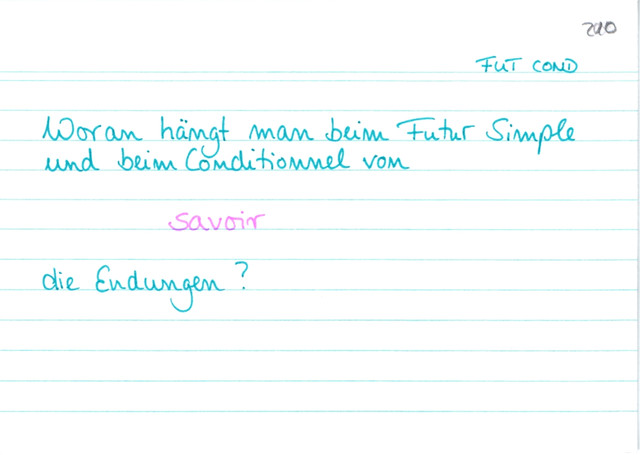 210
FUT COND
Woran hängt man beim Futur Simple
und beim Conditionnel von
savoir
die Endungen?